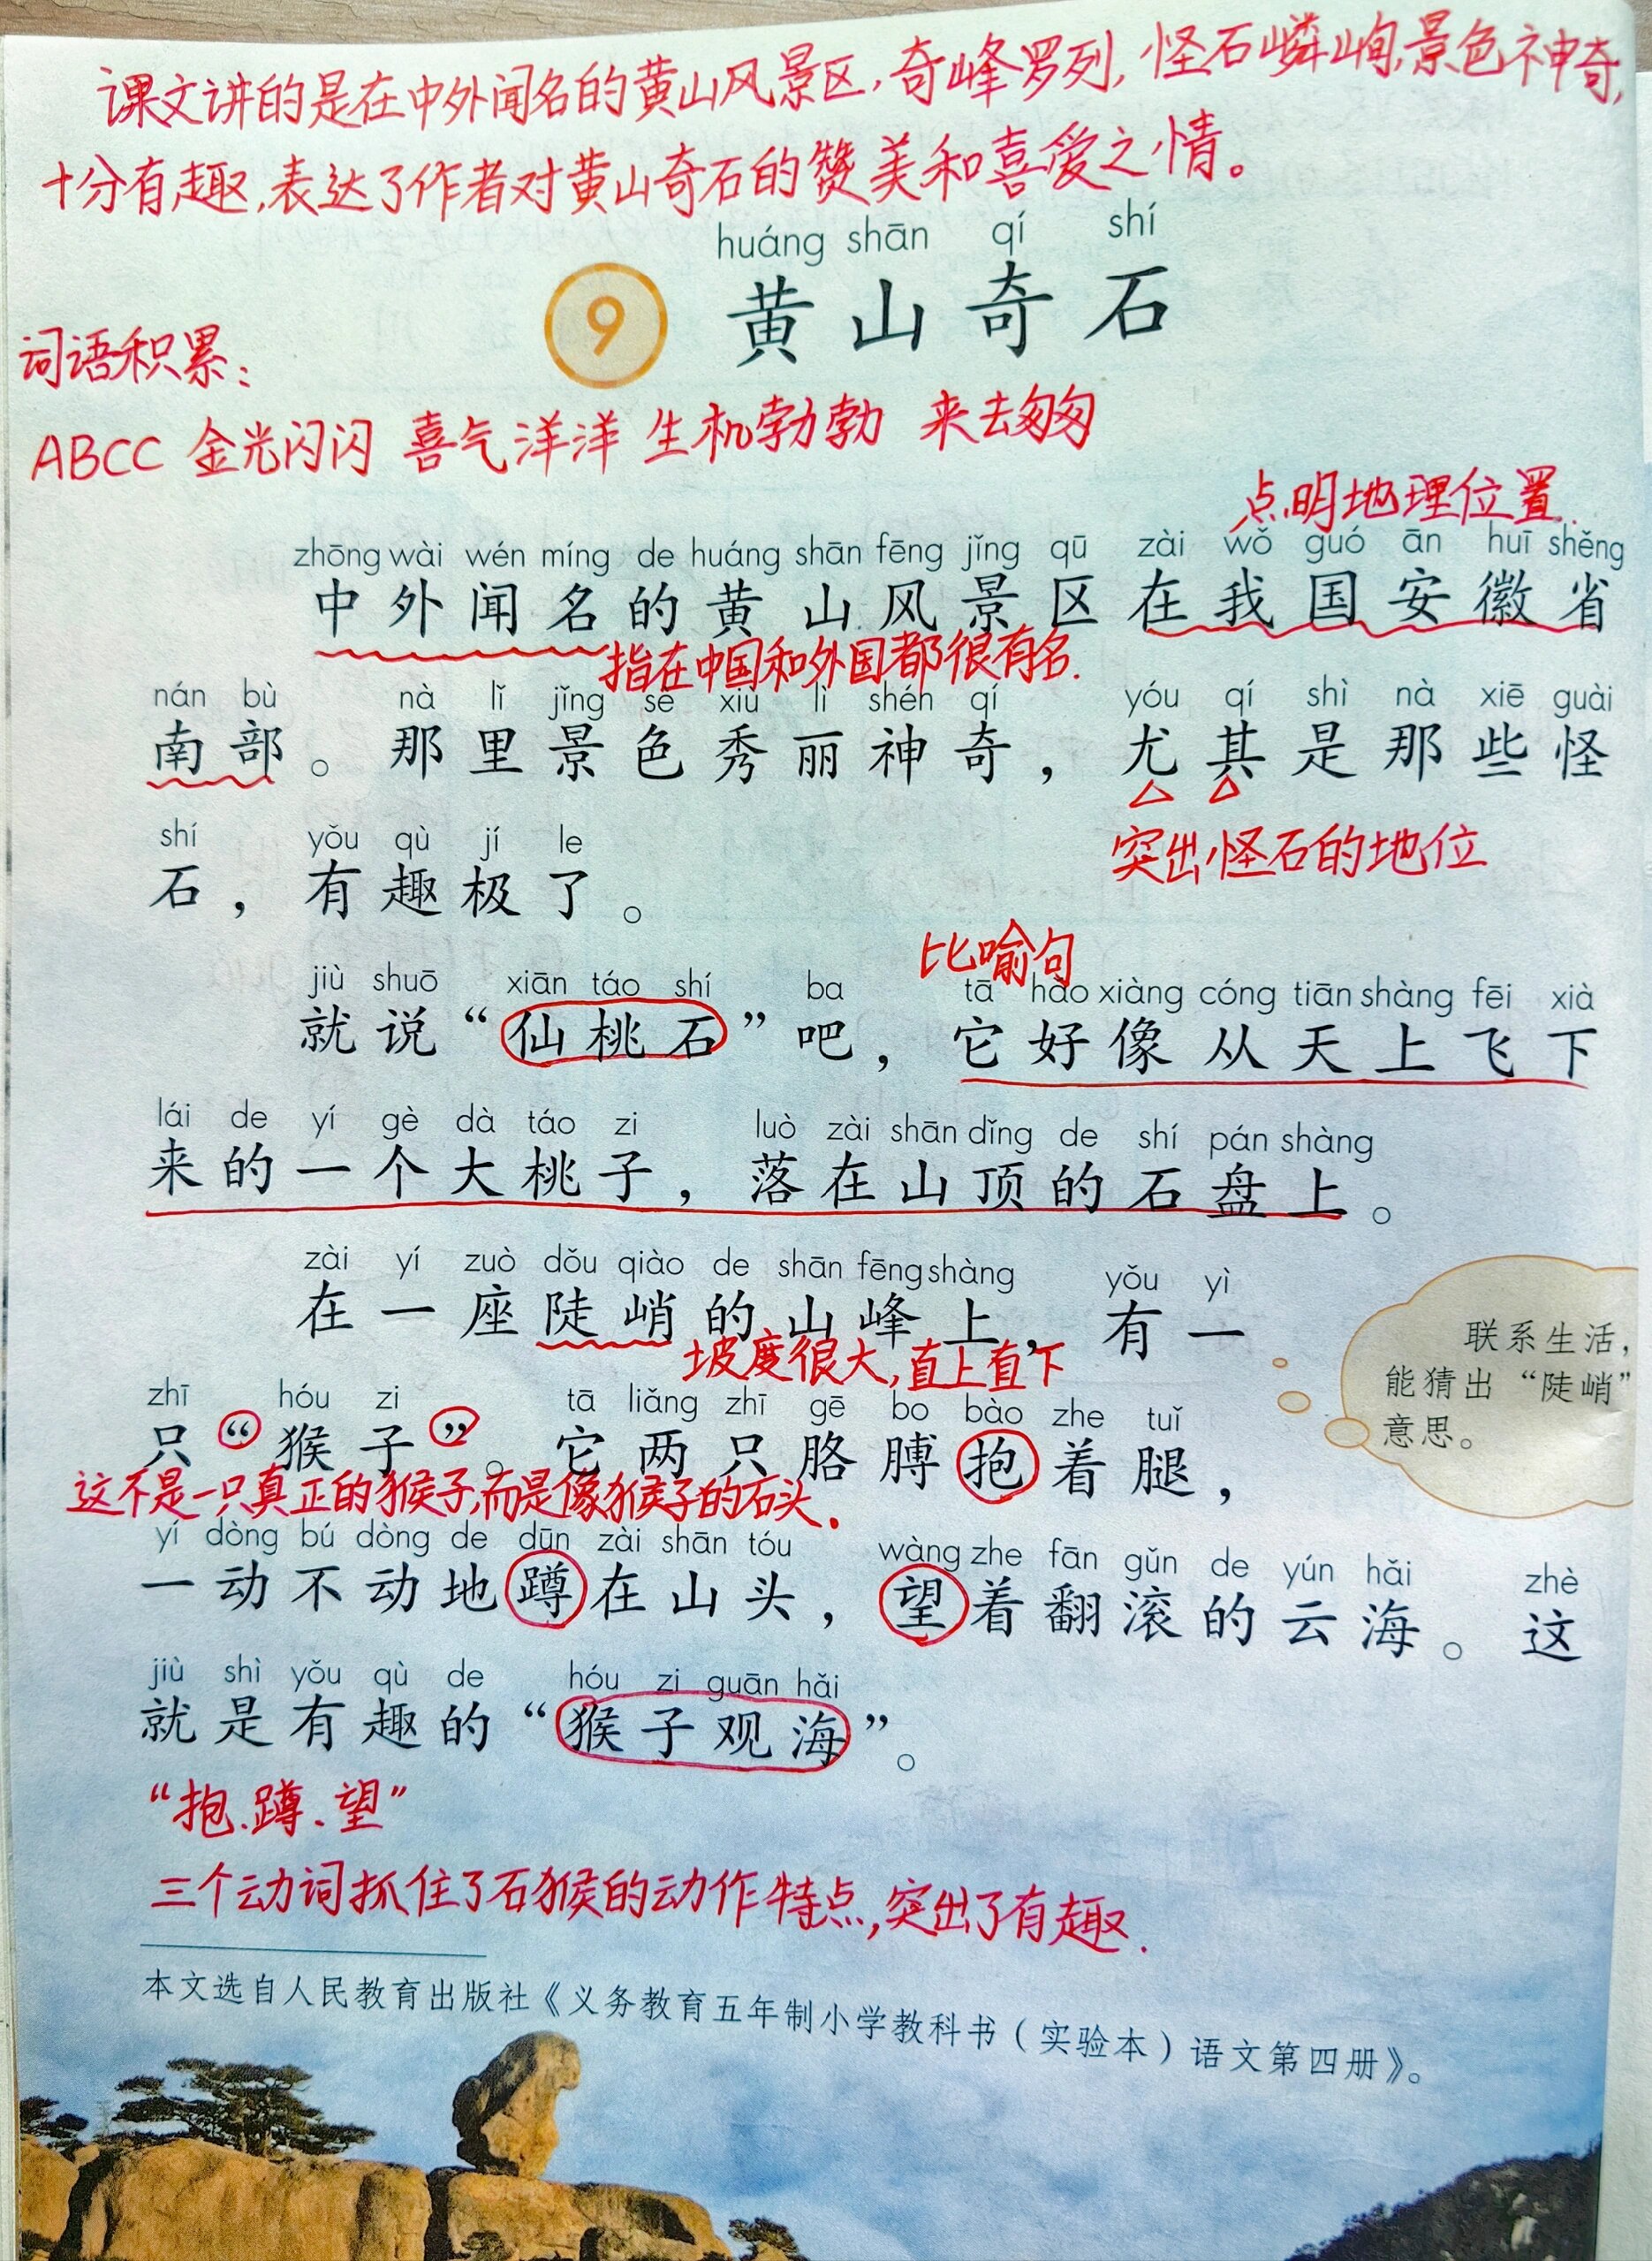 课文讲的是在中外闻名的黄山风景区,奇峰罗列,怪石嶙峋,景色神奇,
十分有趣,表达了作者对黄山奇石的赞美和喜爱之情。
huáng shān qí shí
9 黄山奇石
词语积累:
ABCC 金光闪闪 喜气洋洋 生机勃勃 来去匆匆
点明地理位置.
zhōng wài wén míng de huáng shān fēng jǐng qū zài wǒ guó ān huī shěng
中外闻名的黄山风景区在我国安徽省
指在中国和外国都很有名.
nán bù nà lǐ jǐng sè xiù lì shén qí yóu qí shì nà xiē guài
南部。那里景色秀丽神奇,尤其是那些怪
突出怪石的地位
shí yǒu qù jí le
石,有趣极了。
比喻句
jiù shuō xiān táo shí ba tā hǎo xiàng cóng tiān shàng fēi xià
就说“仙桃石”吧,它好像从天上飞下
lái de yí gè dà táo zi luò zài shān dǐng de shí pán shàng
来的一个大桃子,落在山顶的石盘上。
zài yí zuò dǒu qiào de shān fēng shàng yǒu yì
在一座陡峭的山峰上,有一
坡度很大,直上直下
联系生活,
能猜出“陡峭”
意思。
zhī hóu zi tā liǎng zhī gē bo bào zhe tuǐ
只“猴子”。它两只胳膊抱着腿,
这不是一只真正的猴子,而是像猴子的石头.
yí dòng bú dòng de dūn zài shān tóu wàng zhe fān gǔn de yún hǎi zhè
一动不动地蹲在山头,望着翻滚的云海。这
jiù shì yǒu qù de hóu zi guān hǎi
就是有趣的“猴子观海”。
“抱、蹲、望”
三个动词抓住了石猴的动作特点,突出了有趣.
本文选自人民教育出版社《义务教育五年制小学教科书(实验本)语文第四册》。